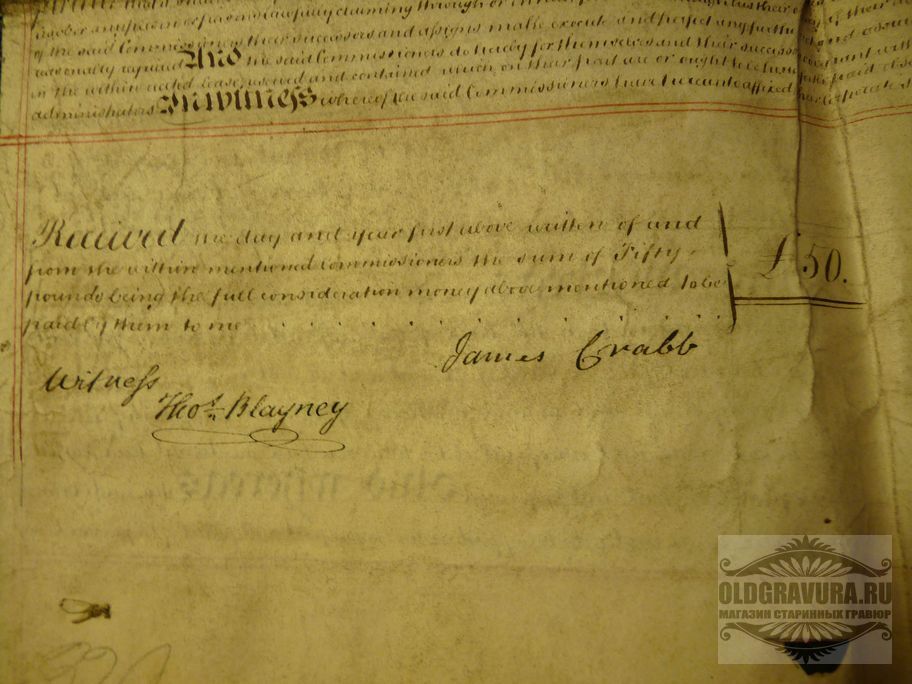 insover
of the said Commissioners their successors and assigns make execute and perfect any further
reasonably required And the said Commissioners do hereby for themselves and their successors
in the within recited lease reserved and contained which on their part are or ought to be
administrators In witness whereof the said Commissioners have hereunto affixed their corporate
Received the day and year first above written of and
from the within mentioned Commissioners the sum of Fifty
pounds being the full consideration money above mentioned to be
paid by them to me . . . . . . . . . . .
£50.
James Crabb
Witness
Thos. Blayney
OLDGRAVURA.RU
МАГАЗИН СТАРИННЫХ ГРАВЮР